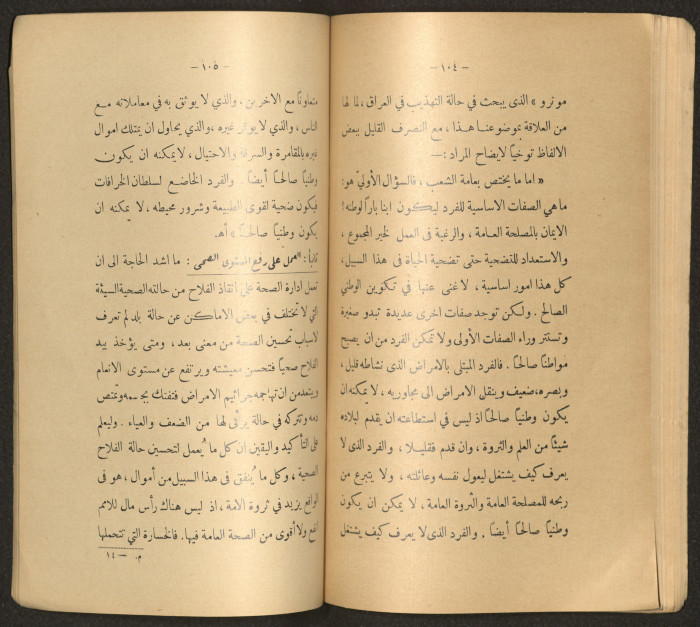 — ١٠٤ —
مونرو » الذى يبحث في حالة التهذيب في العراق، لما لها
من العلاقة بموضوعنا هذا، مع التصرف القليل ببعض
الالفاظ توخياً لايضاح المراد :—
« اما ما يختص بعامة الشعب، فالسؤال الأوليّ هو:
ما هي الصفات الاساسية للفرد ليكون ابنا باراً لوطنه؟
الايمان بالمصلحة العامة، والرغبة في العمل لخير المجموع،
والاستعداد للتضحية حتى تضحية الحياة في هذا السبيل،
كل هذا امور اساسية، لا غنى عنها في تكوين الوطني
الصالح. ولكن توجد صفات اخرى عديدة تبدو صغيرة
وتستتر وراء الصفات الأولى ولا تمكن الفرد من ان يصبح
مواطناً صالحاً. فالفرد المبتلى بالامراض الذى نشاطه قليل،
وبصره، ضعيف وينقل الامراض الى مجاوريه، لا يمكنه ان
يكون وطنيّاً صالحاً اذ ليس في استطاعته ان يقدم لبلاده
شيئاً من العلم والثروة، وان قدم فقليلا، والفرد الذى لا
يعرف كيف يشتغل ليعول نفسه وعائلته، ولا يتبرع من
ربحه للمصلحة العامة والثروة العامة، لا يمكن ان يكون
وطنيّاً صالحاً أيضاً. والفرد الذى لا يعرف كيف يشتغل
— ١٠٥ —
متعاوناً مع الاخرين، والذي لا يوثق به في معاملاته مع
الناس، والذي لا يوقر غيره، والذي يحاول ان يمتلك اموال
غيره بالمقامرة والسرقة والاحتيال، لا يمكنه ان يكون
وطنيّاً صالحاً أيضاً. والفرد الخاضع لسلطان الخرافات
فيكون ضحية لقوى الطبيعة وشرور محيطه، لا يمكنه ان
يكون وطنيّاً صالحاً » أهـ
ثانياً: العمل على رفع المستوى الصحى: ما اشد الحاجة الى ان
تعمل ادارة الصحة على انقاذ الفلاح من حالته الصحية السيئة
التي لا تختلف في بعض الاماكن عن حالة بلد لم تعرف
لاسباب تحسين الصحة من معنى بعد، ومتى يؤخذ بيد
الفلاح صحياً فتحسن معيشته ويرتفع عن مستوى الانعام
ويبتعد من ان تهاجمه جراثيم الامراض فتفتك بجسمه وتمتص
دمه وتتركه في حالة يرثى لها من الضعف والعياء. وليعلم
على التأكيد واليقين ان كل ما يُعمل لتحسين حالة الفلاح
الصحية، وكل ما يُنفق في هذا السبيل من أموال، هو فى
الواقع يزيد في ثروة الامة، اذ ليس هناك رأس مال للامم
انفع ولا أقوى من الصحة العامة فيها. فالخسارة التي تتحملها
م. — ١٤